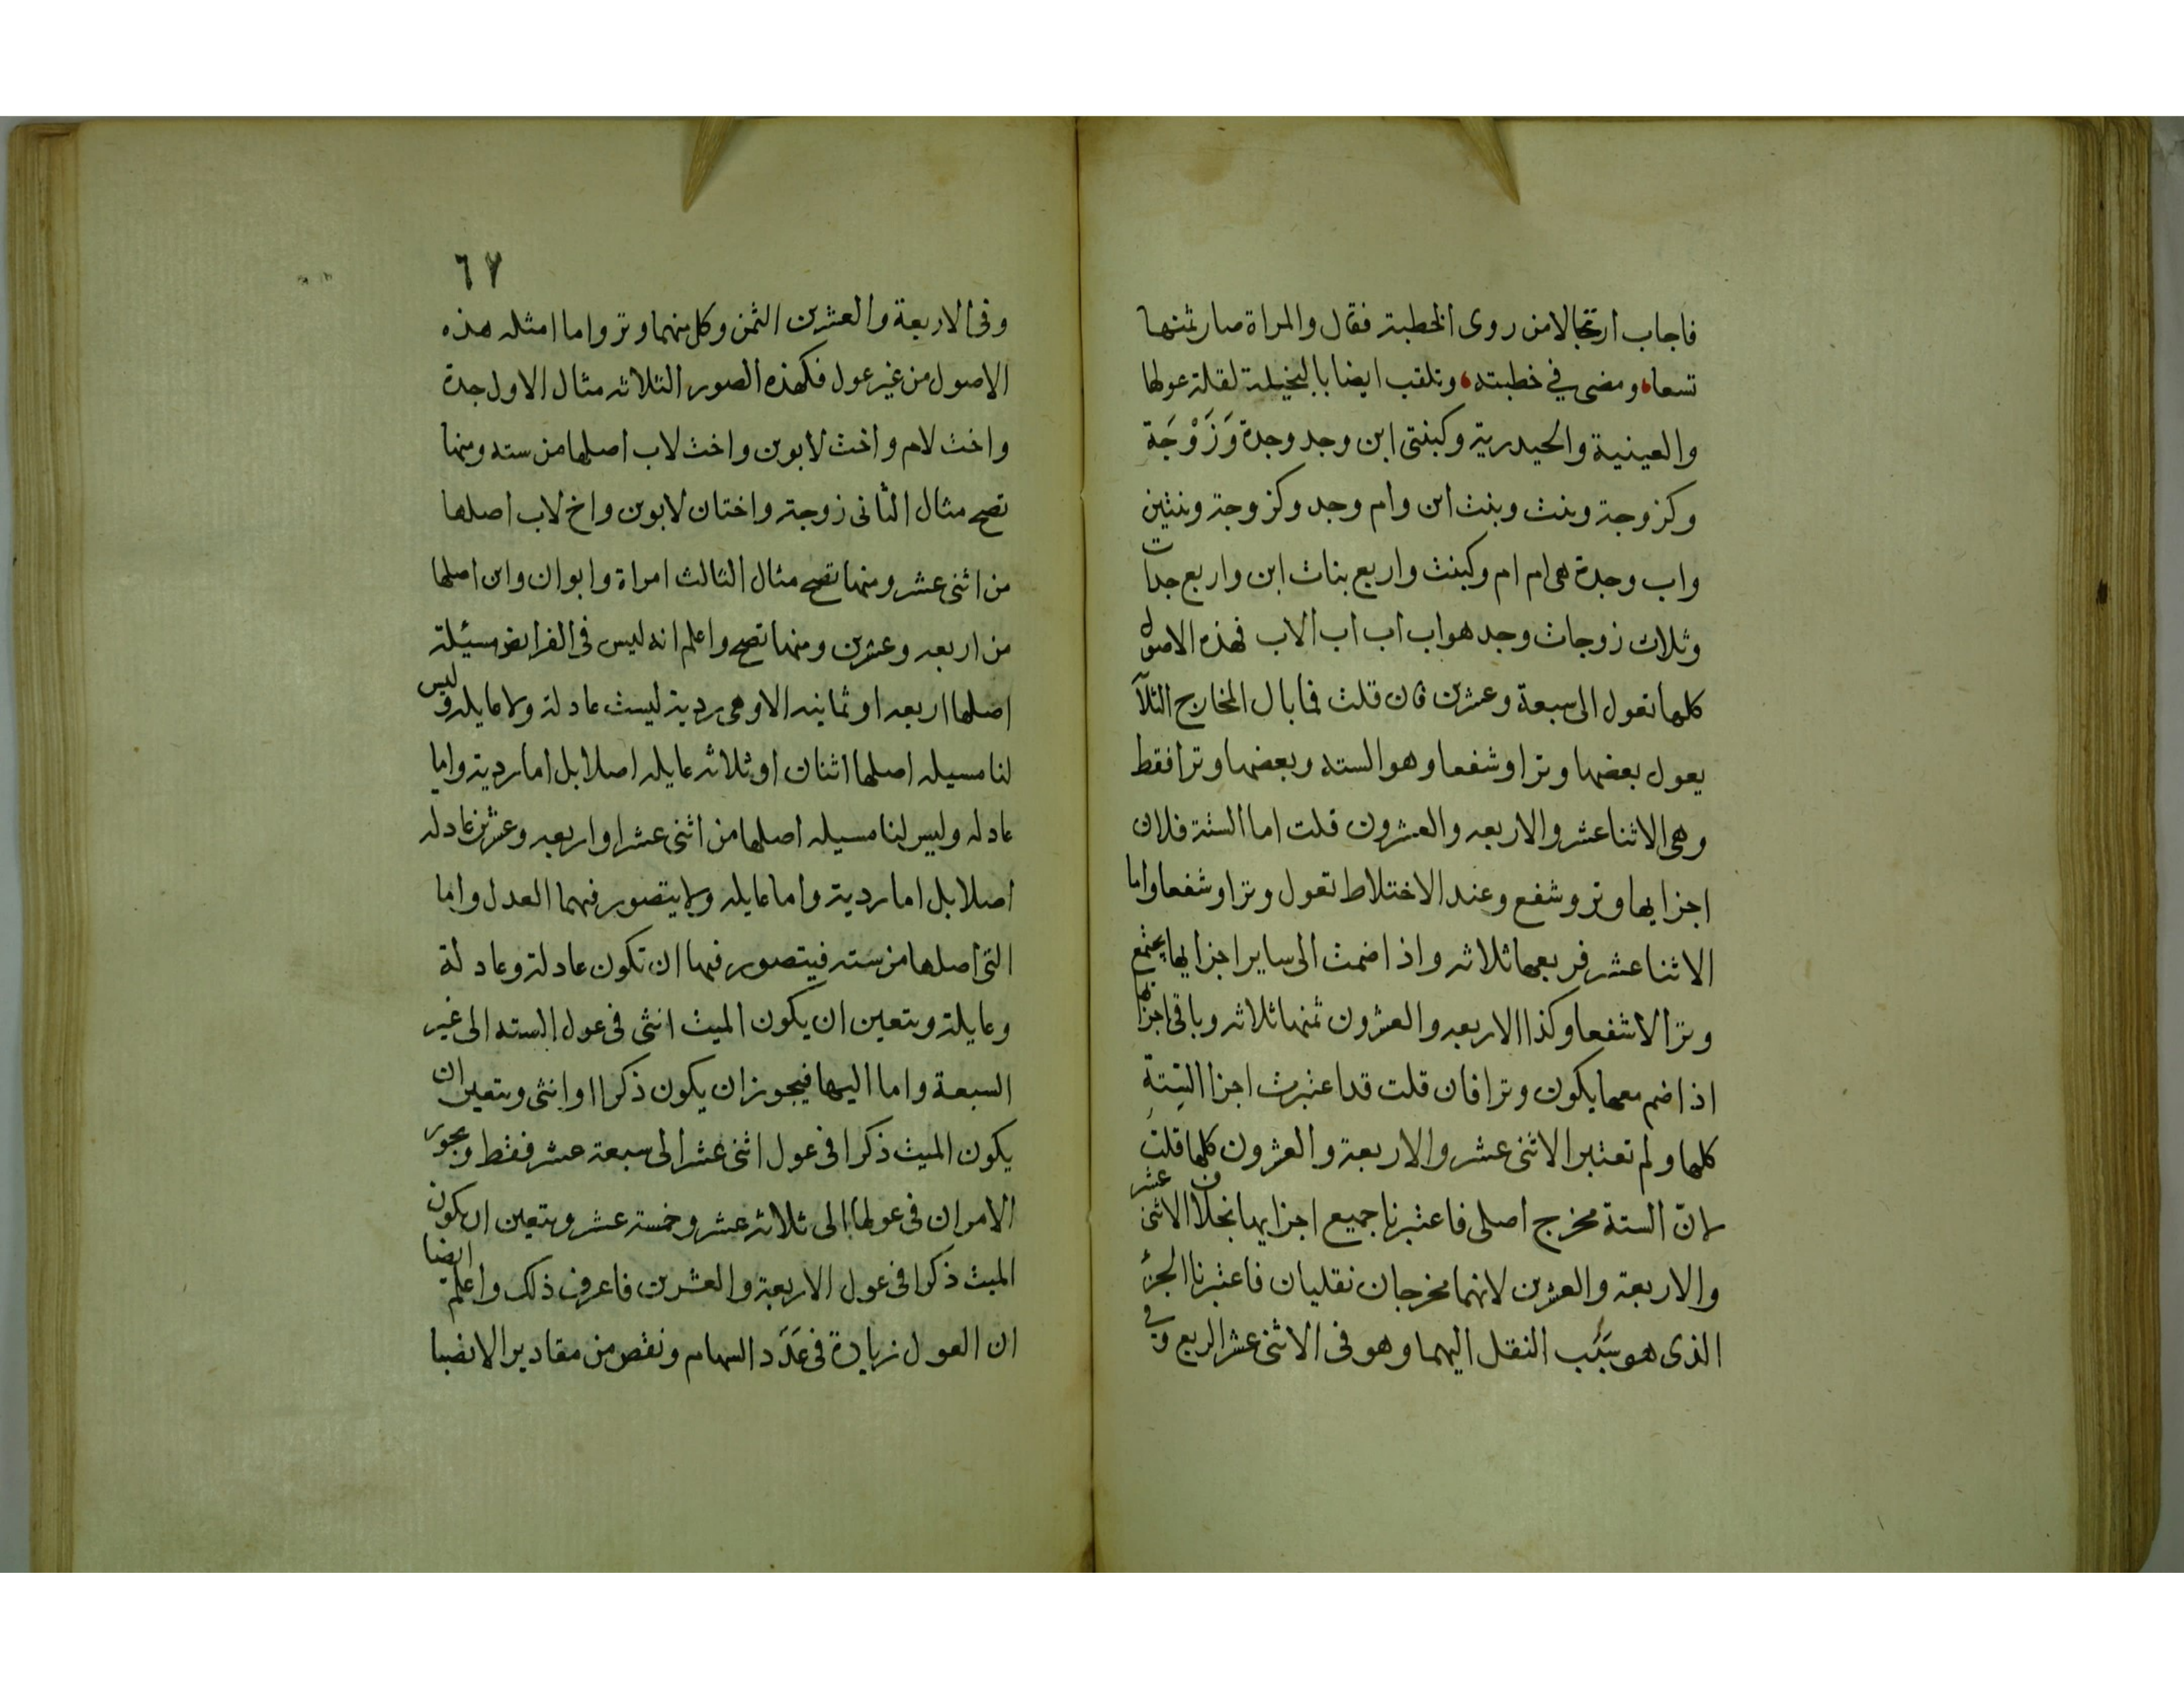 فاجاب ارتجالا من روى الخطبة فقال والمراة صار ثمنها
تسعا، ومضى في خطبته، وتلقب ايضا بالبخيلة لقلة عولها
والعينية والحيدرية وكبنتى ابن وجد وجدة وَزَوْجَة
وكزوجة وبنت وبنت ابن وام وجد وكزوجة وبنتين
واب وجدة هى ام ام وكبنت واربع بنات ابن واربع جدات
وثلاث زوجات وجد هو اب اب اب الاب فهذه الاصول
كلها تعول الى سبعة وعشرين فان قلت فما بال المخارج الثلآ
يعول بعضها وترا وشفعا وهو الستة وبعضها وترا فقط
وهى الاثنا عشر والاربعه والعشرون قلت اما الستة فلان
اجزايها وتر وشفع وعند الاختلاط تعول وترا وشفعا واما
الاثنا عشر فربعها ثلاثه واذا ضمت الى ساير اجزايها يجتمع
وترا لا شفعا وكذا الاربعه والعشرون ثمنها ثلاثه وباقى اجزائها
اذا ضم معها يكون وترا فان قلت قد اعتبرت اجزا الستة
كلها ولم تعتبر الاثنى عشر والاربعة والعشرون كلها قلت
لانّ الستة مخرج اصلى فاعتبرنا جميع اجزايها بخلاف الاثنى عشر
والاربعة والعشرين لانهما مخرجان نقليان فاعتبرنا الجزؤ
الذى هو سَبَب النقل اليهما وهو فى الاثنى عشر الربع وفي
٦٧
وفى الاربعة والعشرين الثمن وكل منهما وتر واما امثله هذه
الاصول من غير عول فكهذه الصور الثلاثه مثال الاول جدة
واخت لام واخت لابوين واخت لاب اصلها من سته ومنها
تصح مثال الثانى زوجة واختان لابوين واخ لاب اصلها
من اثنى عشر ومنها تصح مثال الثالث امراة وابوان وابن اصلها
من اربعه وعشرين ومنها تصح واعلم انه ليس فى الفرايض مسيئلة
اصلها اربعه او ثمانيه الا وهى ردية ليست عادلة ولا عايله وليس
لنا مسيله اصلها اثنان او ثلاثه عايله اصلا بل اما ردية واما
عادله وليس لنا مسيله اصلها من اثنى عشر او اربعه وعشرين عادله
اصلا بل اما ردية واما عايله ولا يتصور فيهما العدل واما
التى اصلها من سته فيتصور فيها ان تكون عادلة وعادلة
وعايلة ويتعين ان يكون الميت انثى فى عول السته الى غير
السبعة واما اليها فيجوز ان يكون ذكرا او انثى ويتعين ان
يكون الميت ذكرا فى عول اثنى عشر الى سبعة عشر فقط ويجوز
الامران فى عولها الى ثلاثة عشر وخمسة عشر ويتعين ان يكون
الميت ذكرا فى عول الاربعة والعشرين فاعرف ذلك واعلم ايضا
ان العول زيادة فى عَدَد السهام ونقص من مقادير الانضبا